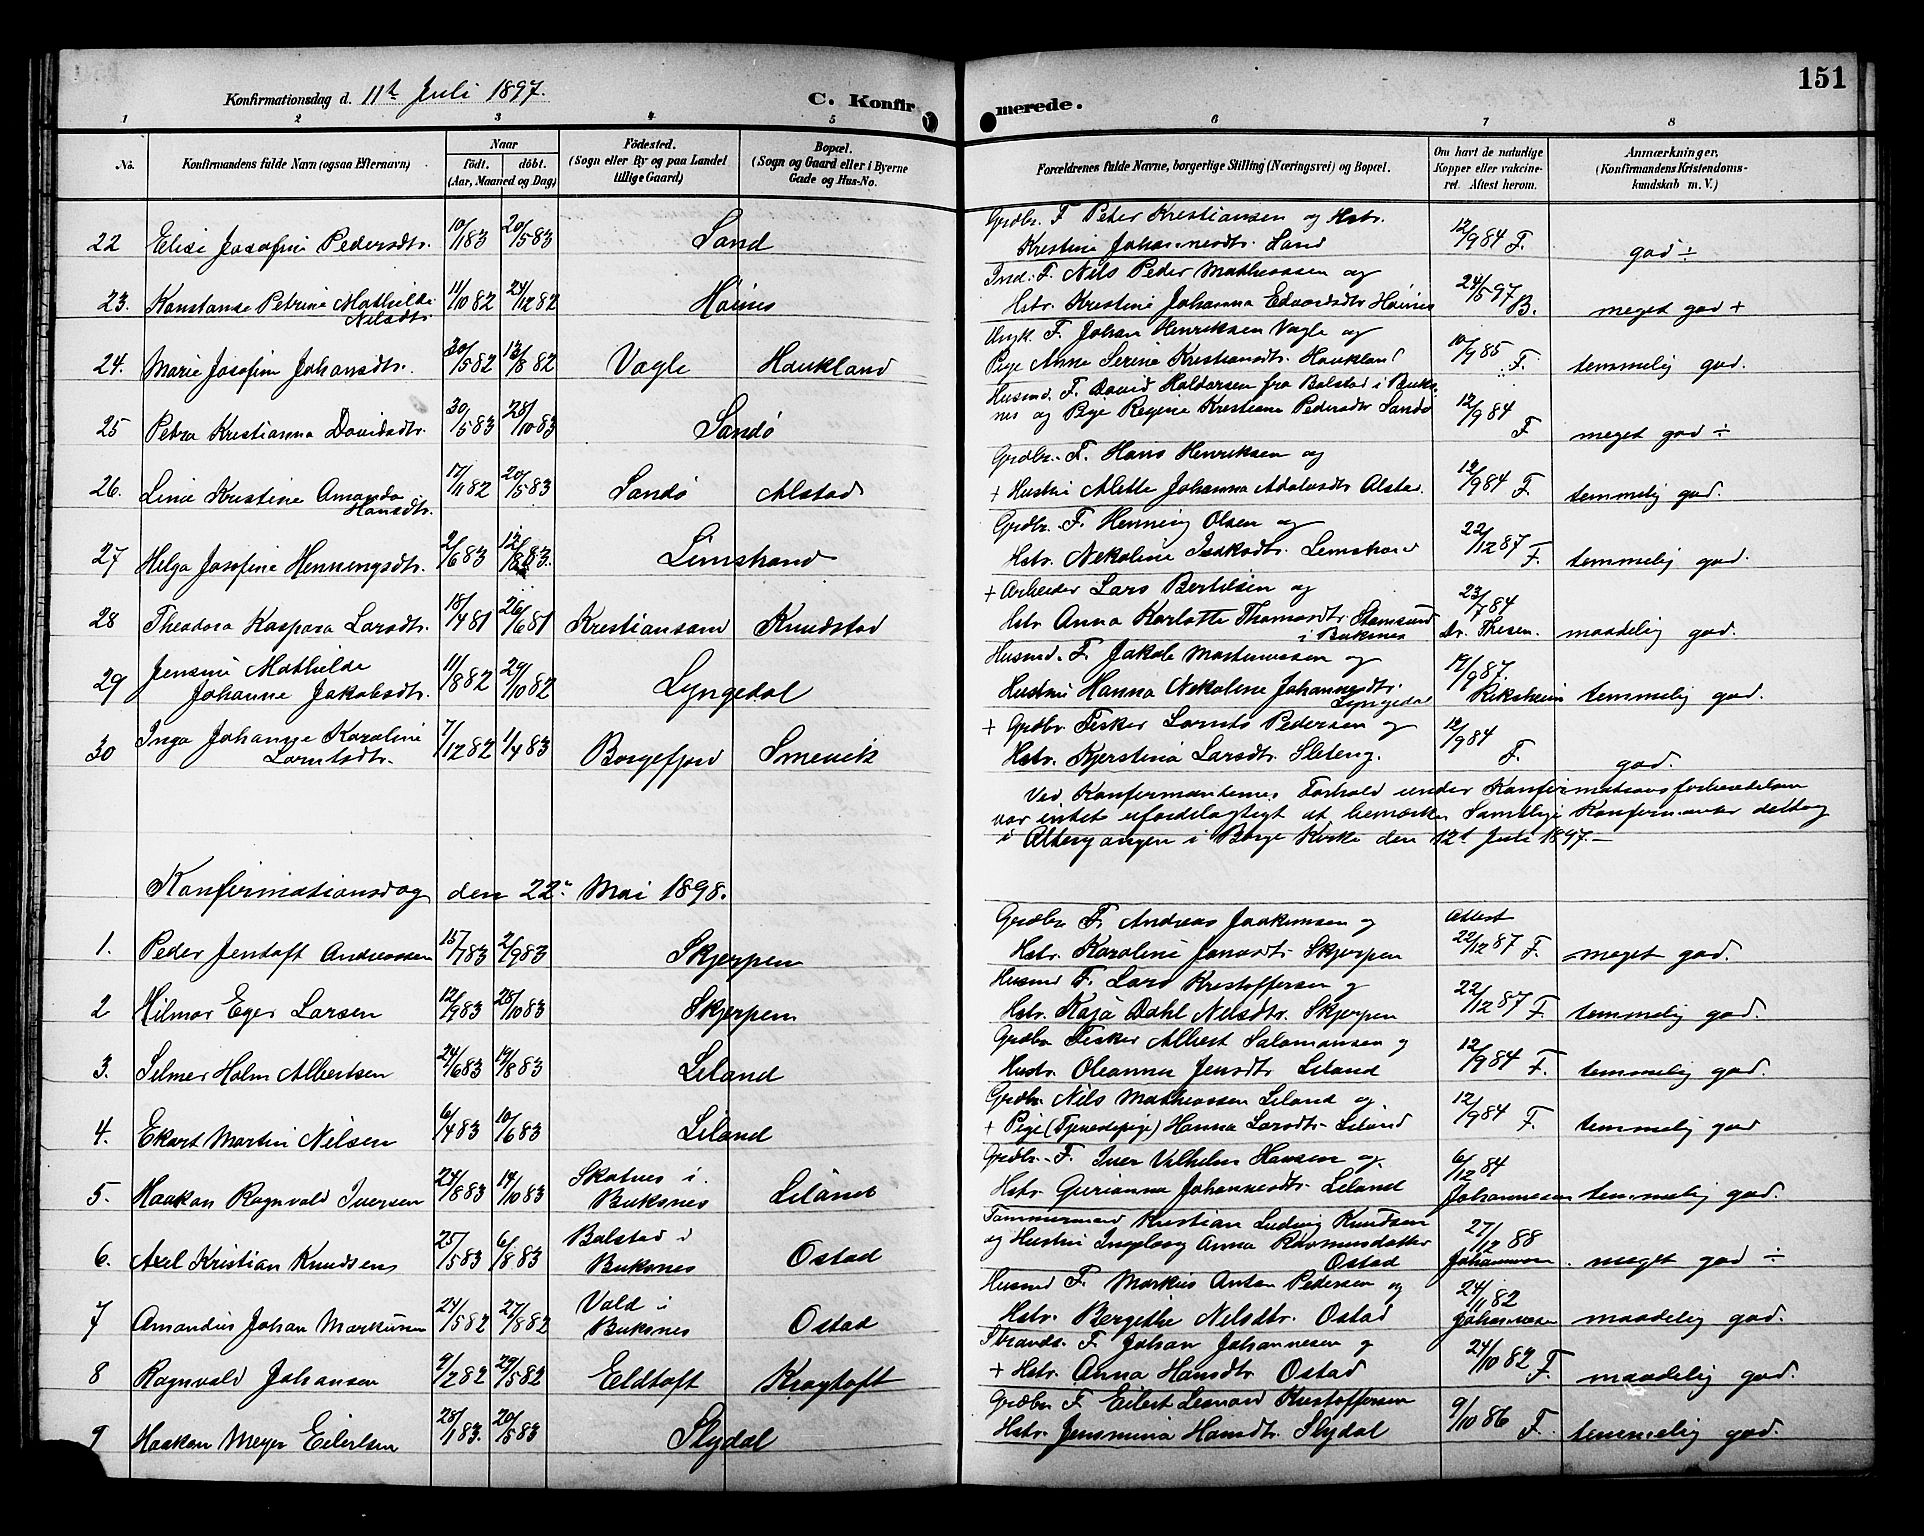 151
Konfirmationsdag d. 11te Juli 1897.
C. Konfirmerede.
1 2 3 4 5 6 7 8
No. Konfirmandens fulde Navn (ogsaa Efternavn) Naar født. døbt. (Aar, Maaned og Dag) Fødested. (Sogn eller By og paa Landet tillige Gaard) Bopæl. (Sogn og Gaard eller i Byerne Gade og Hus-No. Forældrenes fulde Navne, borgerlige Stilling (Næringsvei) og Bopæl. Om havt de naturlige Kopper eller vakcineret. Attest herom. Anmærkninger, (Konfirmandens Kristendomskundskab m. V.)
22 Elise Josefine Pedersdtr. 10/1 83 20/5 83 Sand Grdbr. F. Peter Kristiansen og Hstr.
Kristine Johannesdtr. Sand 12/9 84 F. god ÷
23. Konstanse Petrine Mathilde Nilsdtr 11/10 82 24/12 82 Höines Ind. F. Nils Peder Matheassen og
Hstr. Kristine Johanna Edvardsdtr Höines 24/5 97 B. meget god +
24. Marie Josefine Johansdtr. 30/5 82 13/8 82 Vagle Haukland Ungk. F. Johan Henriksen Vagle og
Pige Anna Serine Kristiansdtr. Haukland 10/9 85 F. temmelig god.
25 Petra Kristianna Davidsdtr. 30/5 83 28/10 83 Sandö Husmd. F. David Haldorsen fra Balstad i Buksnes
og Pige Regine Kristiane Pedersdtr Sandö 12/9 84 F meget god ÷
26. Line Kristine Amanda Hansdtr. 17/11 82 20/5 83 Sandö Alstad Grdbr. F. Hans Henriksen og
+ Hustru Alette Johanna Adolosdtr Alstad. 12/9 84 F. temmelig god.
27 Helga Josefine Henningsdtr. 2/6 83 12/8 83. Limstrand Grdbr. F. Henning Olsen og
Hstr. Nekoline Isaksdtr. Lemstrand 22/12 87 F. temmelig god.
28 Theodora Kaspara Larsdtr. 18/4 81 26/6 81 Kristiansand Knudstad + Arbeider Lars Bertilsen og
Hstr. Anna Karlotte Thomasdtr. Stamsund i Buksnes 23/7 84 Dr. Thesen. maadelig god.
29 Jensine Mathilde Johanne Jakobsdtr. 11/8 82 29/10 82 Lyngedal Husmd. F. Jakob Martinussen og
Hustru Hanna Nekoline Johannesdtr. Lyngedal 17/9 87. Riksheim temmelig god.
30 Inga Johanne Karoline Larntsdtr. 7/12 82 1/4 83 Borgefjord Smevik + Grdbr Fisker Larnts Pedersen og
Hstr. Kjerstina Larsdtr. Sleteng. 12/9 84 F. god.
Ved Konfermantenes Forhold under Konfirmationsforberedelsen
var intet ufordelagtigt at bemærke. Samtlige Konfermanter deltog
i Altergangen i Borge Kirke den 12t Juli 1897. –
Konfermationsdag den 22de Mai 1898.
1. Peder Jentoft Andreassen 15/7 83 2/9 83 Skjerpen Grdbr F. Andreas Joakimsen og
Hstr. Karoline Jonasdtr Skjerpen Attest 22/12 87 F. meget god.
2 Hilmar Eger Larsen 12/9 83 28/10 83 Skjerpen Husmd F. Lars Kristoffersen og
Hstr. Kaja Dahl Nilsdtr. Skjerpen 22/12 87 F temmelig god.
3. Selmer Holm Albertsen 24/6 83 19/8 83 Leland Grdbr Fisker Albert Salamonsen og
Hustr. Oleanna Jensdtr Leland 12/9 84 F. temmelig god.
4. Ekart Martin Nilsen 6/4 83 10/6 83 Leland Grdbr. Nils Matheassen Leland og
+ Pige (Tjenestepige) Hanna Larsdtr- Leland 12/9 84 F. temmelig god
5. Haakon Ragnvald Iversen 24/8 83 14/10 83 Skotnes i Buksnes Leland Grdbr. F. Iver Vilhelm Hansen og
Hstr. Gurianna Johannesdtr. Leland 6/12 84 Johannesen temmelig god.
6. Axel Kristian Knudsen 25/5 83 6/8 83 Balstad i Buksnes Ostad Tømmermand Kristian Ludvig Knudsen
og Hustru Ingeborg Anna Rasmusdatter Ostad 27/12 88 Johannesen. meget god ÷
7 Amandus Johan Markusen 24/5 82 27/8 82 Vold i Buksnes Ostad Husmd F. Markus Anton Pedersen og
Hstr. Bergithe Nilsdtr. Ostad 24/11 82 Johannesen maadelig god.
8 Ragnvald Johansen 9/2 82 29/5 82 Eldtoft Kragtoft Strands. F. Johan Johannesen og
+ Hstr. Anna Hansdtr. Ostad 24/10 82 F. maadelig god.
9 Haakon Meyer Eilertsen 28/1 83. 20/5 83 Slydal Grdbr F. Eilert Leonard Kristoffersen
Hstr. Jensmina Hansdtr. Slydal 9/10 86 F. temmelig god.